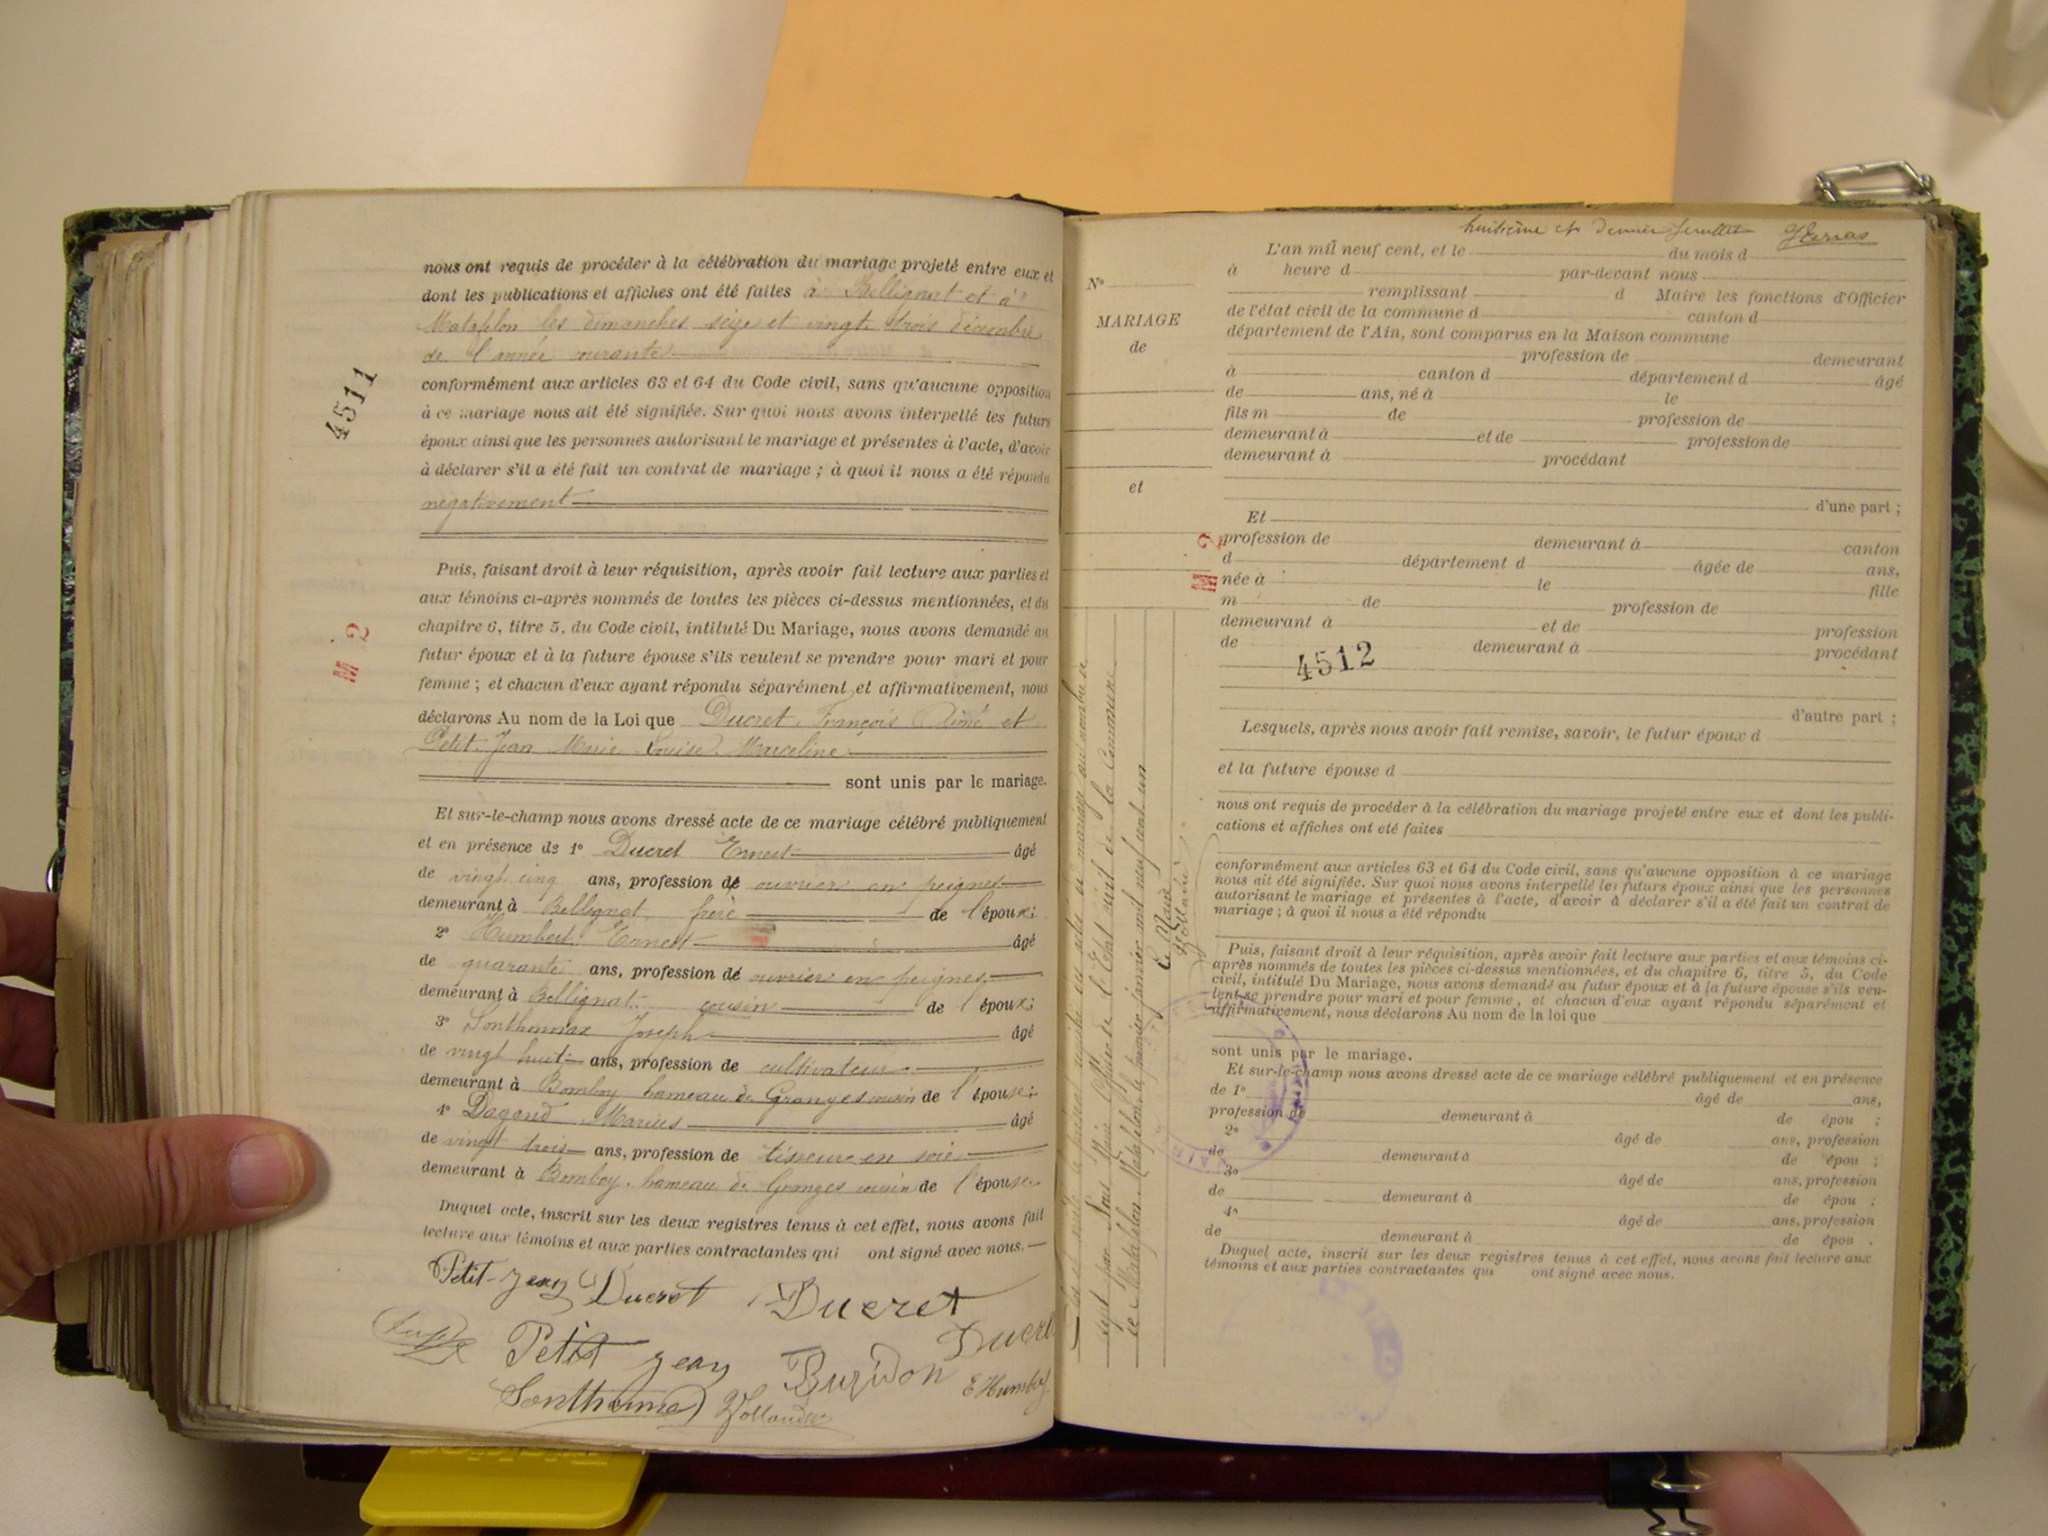 nous ont requis de procéder à la célébration du mariage projeté entre eux et
dont les publications et affiches ont été faites à Bellignat et à
Matafelon les dimanches seize et vingt trois décembre
de l'année courante
conformément aux articles 63 et 64 du Code civil, sans qu'aucune opposition
à ce mariage nous ait été signifiée. Sur quoi nous avons interpellé les futurs
époux ainsi que les personnes autorisant le mariage et présentes à l'acte, d'avoir
à déclarer s'il a été fait un contrat de mariage ; à quoi il nous a été répondu
négativement
4511
Puis, faisant droit à leur réquisition, après avoir fait lecture aux parties et
aux témoins ci-après nommés de toutes les pièces ci-dessus mentionnées, et du
chapitre 6, titre 5, du Code civil, intitulé Du Mariage, nous avons demandé au
futur époux et à la future épouse s'ils veulent se prendre pour mari et pour
femme ; et chacun d'eux ayant répondu séparément et affirmativement, nous
déclarons Au nom de la Loi que Ducret François Aimé et
Petit-Jean Marie Louise Marceline
sont unis par le mariage.
M 2
Et sur-le-champ nous avons dressé acte de ce mariage célébré publiquement
et en présence de 1° Ducret Ernest âgé
de vingt cinq ans, profession de ouvrier en peignes
demeurant à Bellignat, frère de l'époux;
2° Humbert Ernest âgé
de quarante ans, profession de ouvrier en peignes
demeurant à Bellignat cousin de l'époux;
3° Sonthonnax Joseph âgé
de vingt huit ans, profession de cultivateur
demeurant à Bomboy hameau de Granges cousin de l'épouse;
4° Dagand Marius âgé
de vingt trois ans, profession de tisseur en soie
demeurant à Bomboy, hameau de Granges cousin de l'épouse
Duquel acte, inscrit sur les deux registres tenus à cet effet, nous avons fait
lecture aux témoins et aux parties contractantes qui ont signé avec nous.
Petit-Jean Ducret Ducret
Petit Jean Buridon Ducret
Sonthonnax E Humbert
huitième et dernier feuillet
L'an mil neuf cent, et le du mois d
à heure d par-devant nous
remplissant d Maire les fonctions d'Officier
de l'état civil de la commune d canton d
département de l'Ain, sont comparus en la Maison commune
profession de demeurant
à canton d département d âgé
de ans, né à le
fils m de profession de
demeurant à et de profession de
demeurant à procédant
d'une part ;
Et
profession de demeurant à canton
d département d âgée de ans,
née à le fille
m de profession de
demeurant à et de profession
de demeurant à procédant
4512
d'autre part ;
Lesquels, après nous avoir fait remise, savoir, le futur époux d
et la future épouse d
nous ont requis de procéder à la célébration du mariage projeté entre eux et dont les publi-
cations et affiches ont été faites
conformément aux articles 63 et 64 du Code civil, sans qu'aucune opposition à ce mariage
nous ait été signifiée. Sur quoi nous avons interpellé les futurs époux ainsi que les personnes
autorisant le mariage et présentes à l'acte, d'avoir à déclarer s'il a été fait un contrat de
mariage ; à quoi il nous a été répondu
Puis, faisant droit à leur réquisition, après avoir fait lecture aux parties et aux témoins ci-
après nommés de toutes les pièces ci-dessus mentionnées, et du chapitre 6, titre 5, du Code
civil, intitulé Du Mariage, nous avons demandé au futur époux et à la future épouse s'ils veu-
lent se prendre pour mari et pour femme, et chacun d'eux ayant répondu séparément et
affirmativement, nous déclarons Au nom de la loi que
sont unis par le mariage.
Et sur-le-champ nous avons dressé acte de ce mariage célébré publiquement et en présence
de 1° âgé de ans,
profession de demeurant à de épou ;
2° âgé de ans, profession
de demeurant à de épou ;
3° âgé de ans, profession
de demeurant à de épou ;
4° âgé de ans, profession
de demeurant à de épou .
Duquel acte, inscrit sur les deux registres tenus à cet effet, nous avons fait lecture aux
témoins et aux parties contractantes qui ont signé avec nous.
N°
MARIAGE
de
et
M 2
Clos et arrêté le présent registre des actes de mariage au nombre de
sept par Nous Maire Officier de l'Etat civil de la Commune
de Matafelon. Matafelon le premier janvier mil neuf cent un
Le Maire